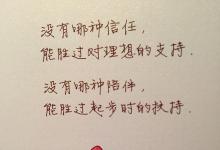 没有哪种信任，
能胜过对理想的支持．
没有哪种陪伴，
能胜过起步时的扶持．